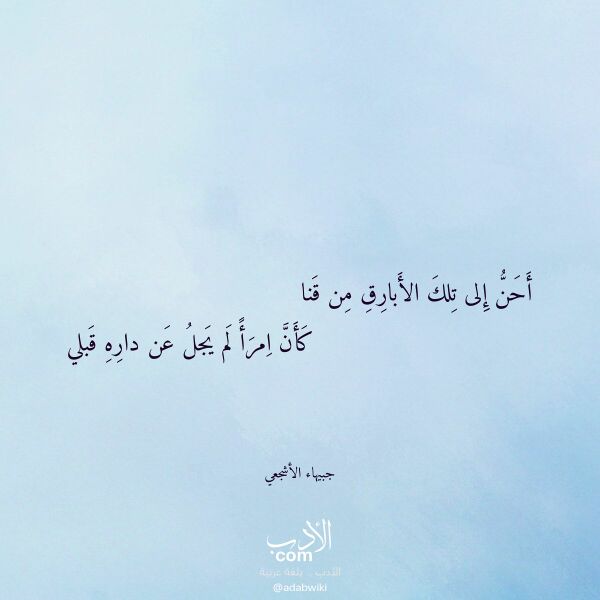 أَحَنُّ إِلى تِلكَ الأَبارِقِ مِن قَنا
كَأَنَّ اِمرَأً لَم يَجلُ عَن دارِهِ قَبلي
جبيهاء الأشجعي
الأدب
com
الأدب .. بلغة عربية
@adabwiki